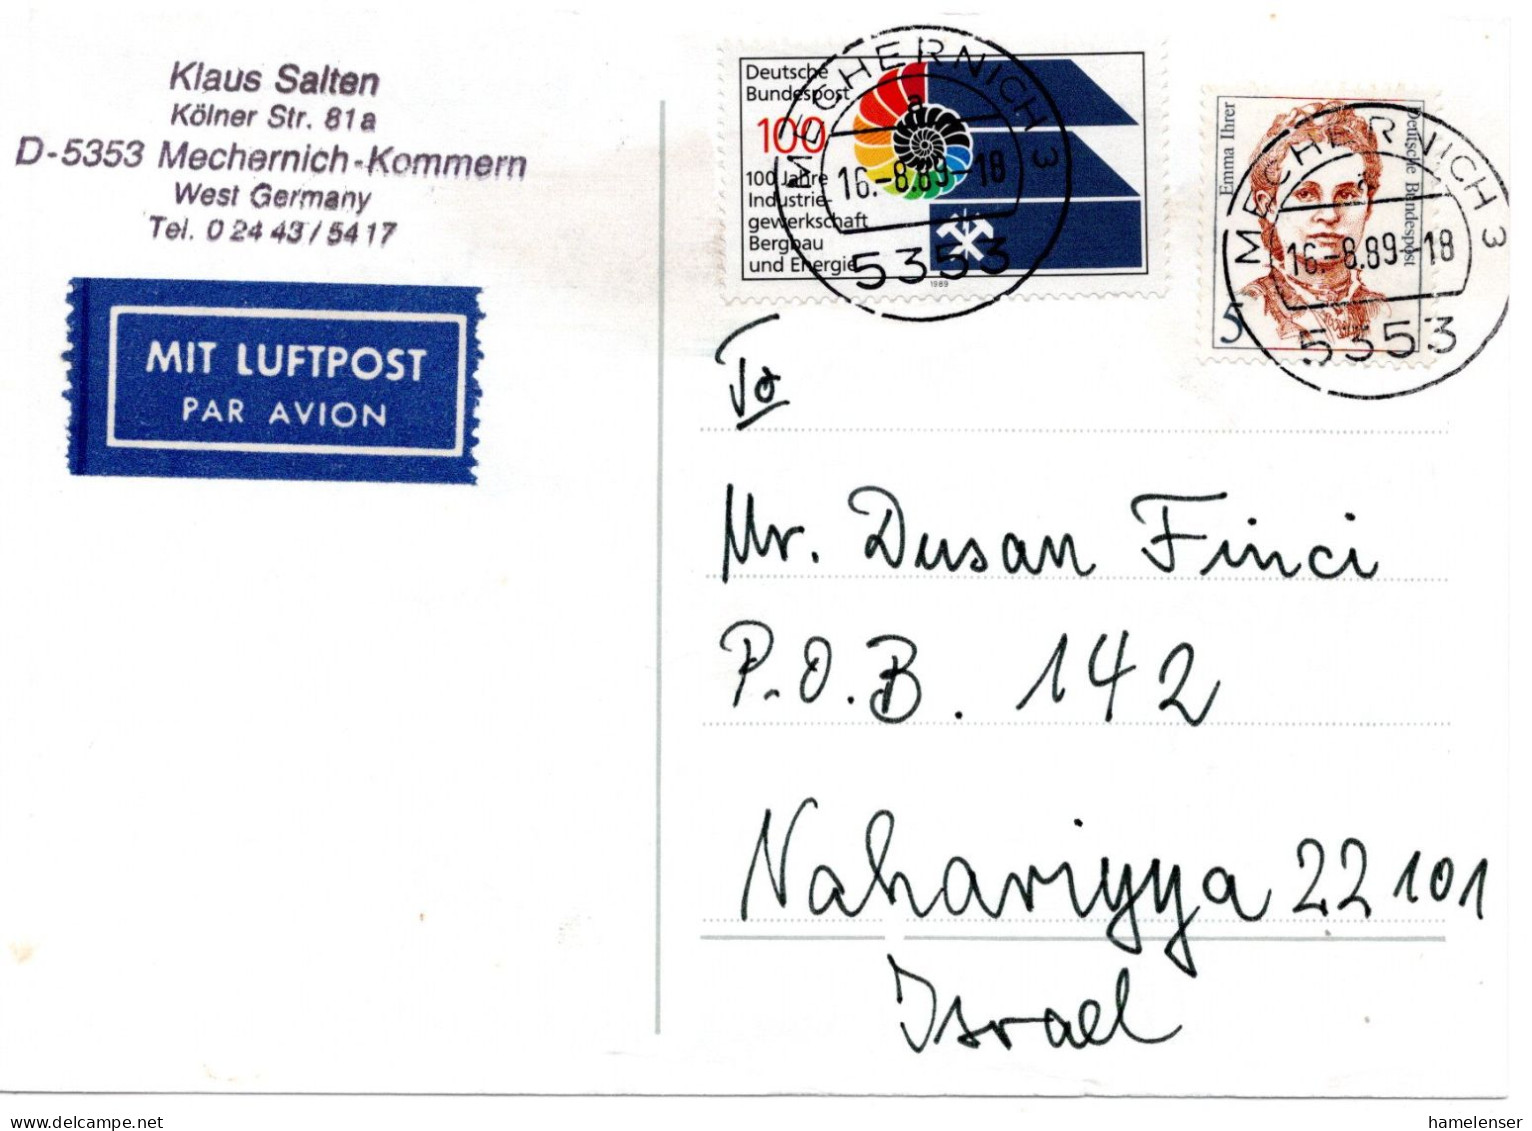 Klaus Salten
Kölner Str. 81a
D-5353 Mechernich-Kommern
West Germany
Tel. 0 24 43 / 54 17
MIT LUFTPOST
PAR AVION
Deutsche
Bundespost
100
100 Jahre
Industrie-
gewerkschaft
Bergbau
und Energie
1989
MECHERNICH 3
a
16.-8.89-18
5353
Emma Ihrer
Deutsche Bundespost
5
MECHERNICH 3
a
16.-8.89-18
5353
To
Mr. Dusan Finci
P.O.B. 142
Nahariyya 22101
Israel
hamelenser